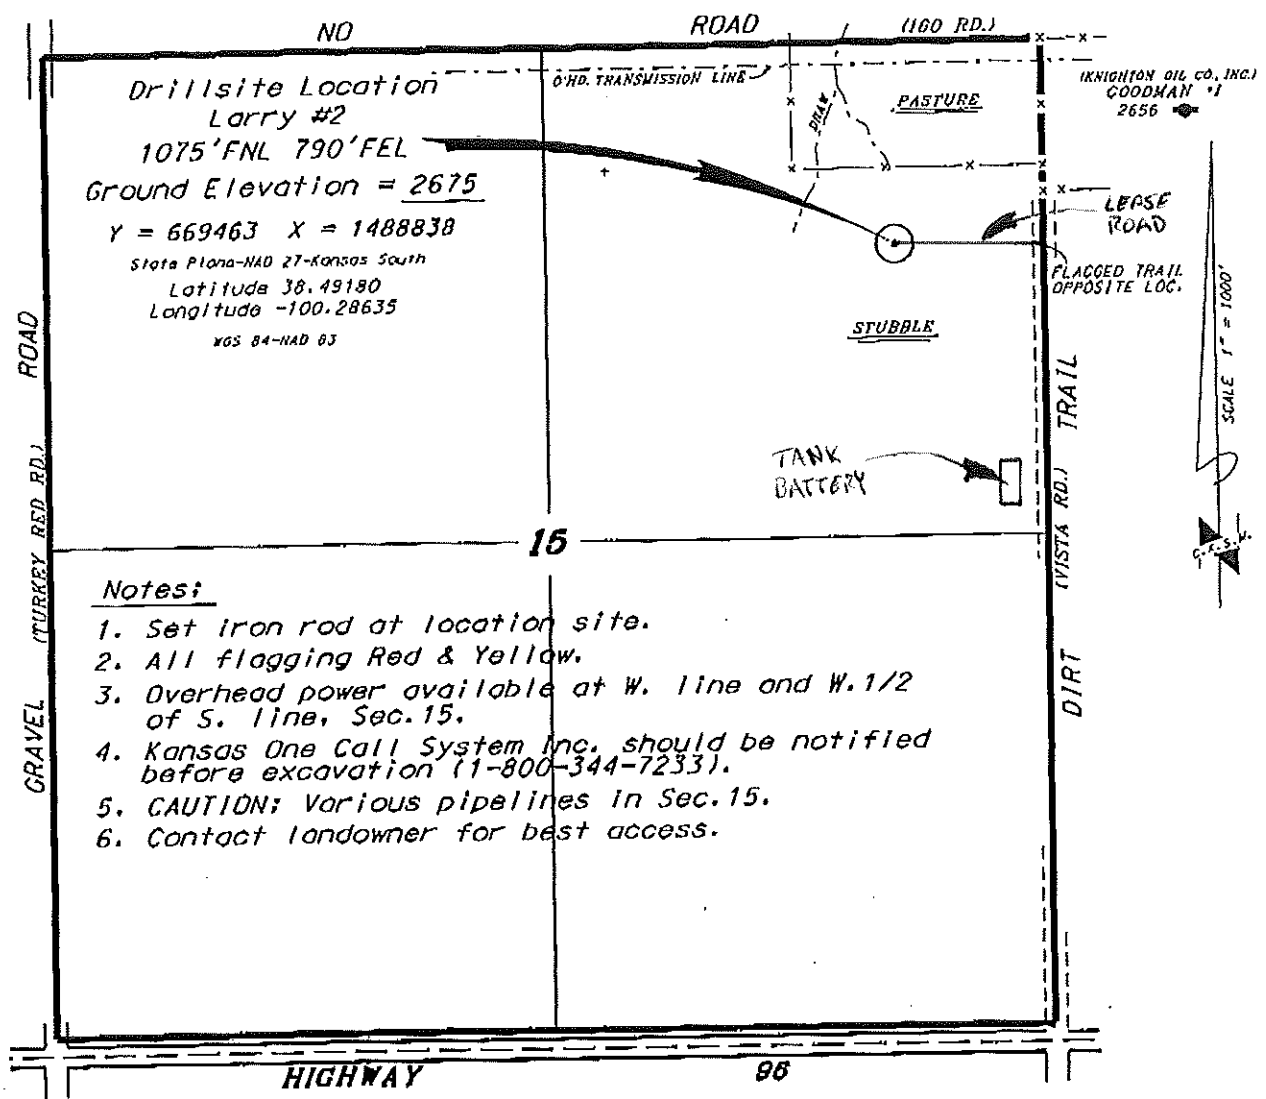 NO ROAD (160 RD.)
Drillsite Location
Larry #2
1075'FNL 790'FEL
Ground Elevation = 2675
Y = 669463 X = 1488838
State Plane-NAD 27-Kansas South
Latitude 38.49180
Longitude -100.28635
WGS 84-NAD 83
O'HD. TRANSMISSION LINE
DRAW
PASTURE
(KNIGHTON OIL CO., INC.)
GOODMAN #1
2656
LEASE
ROAD
FLAGGED TRAIL
OPPOSITE LOC.
STUBBLE
SCALE 1" = 1000'
TANK
BATTERY
C.K.S.W.
GRAVEL (TURKEY RED RD.) ROAD
DIRT (VISTA RD.) TRAIL
15
Notes:
1. Set iron rod at location site.
2. All flagging Red & Yellow.
3. Overhead power available at W. line and W.1/2
of S. line, Sec.15.
4. Kansas One Call System Inc. should be notified
before excavation (1-800-344-7233).
5. CAUTION: Various pipelines in Sec.15.
6. Contact landowner for best access.
HIGHWAY 96